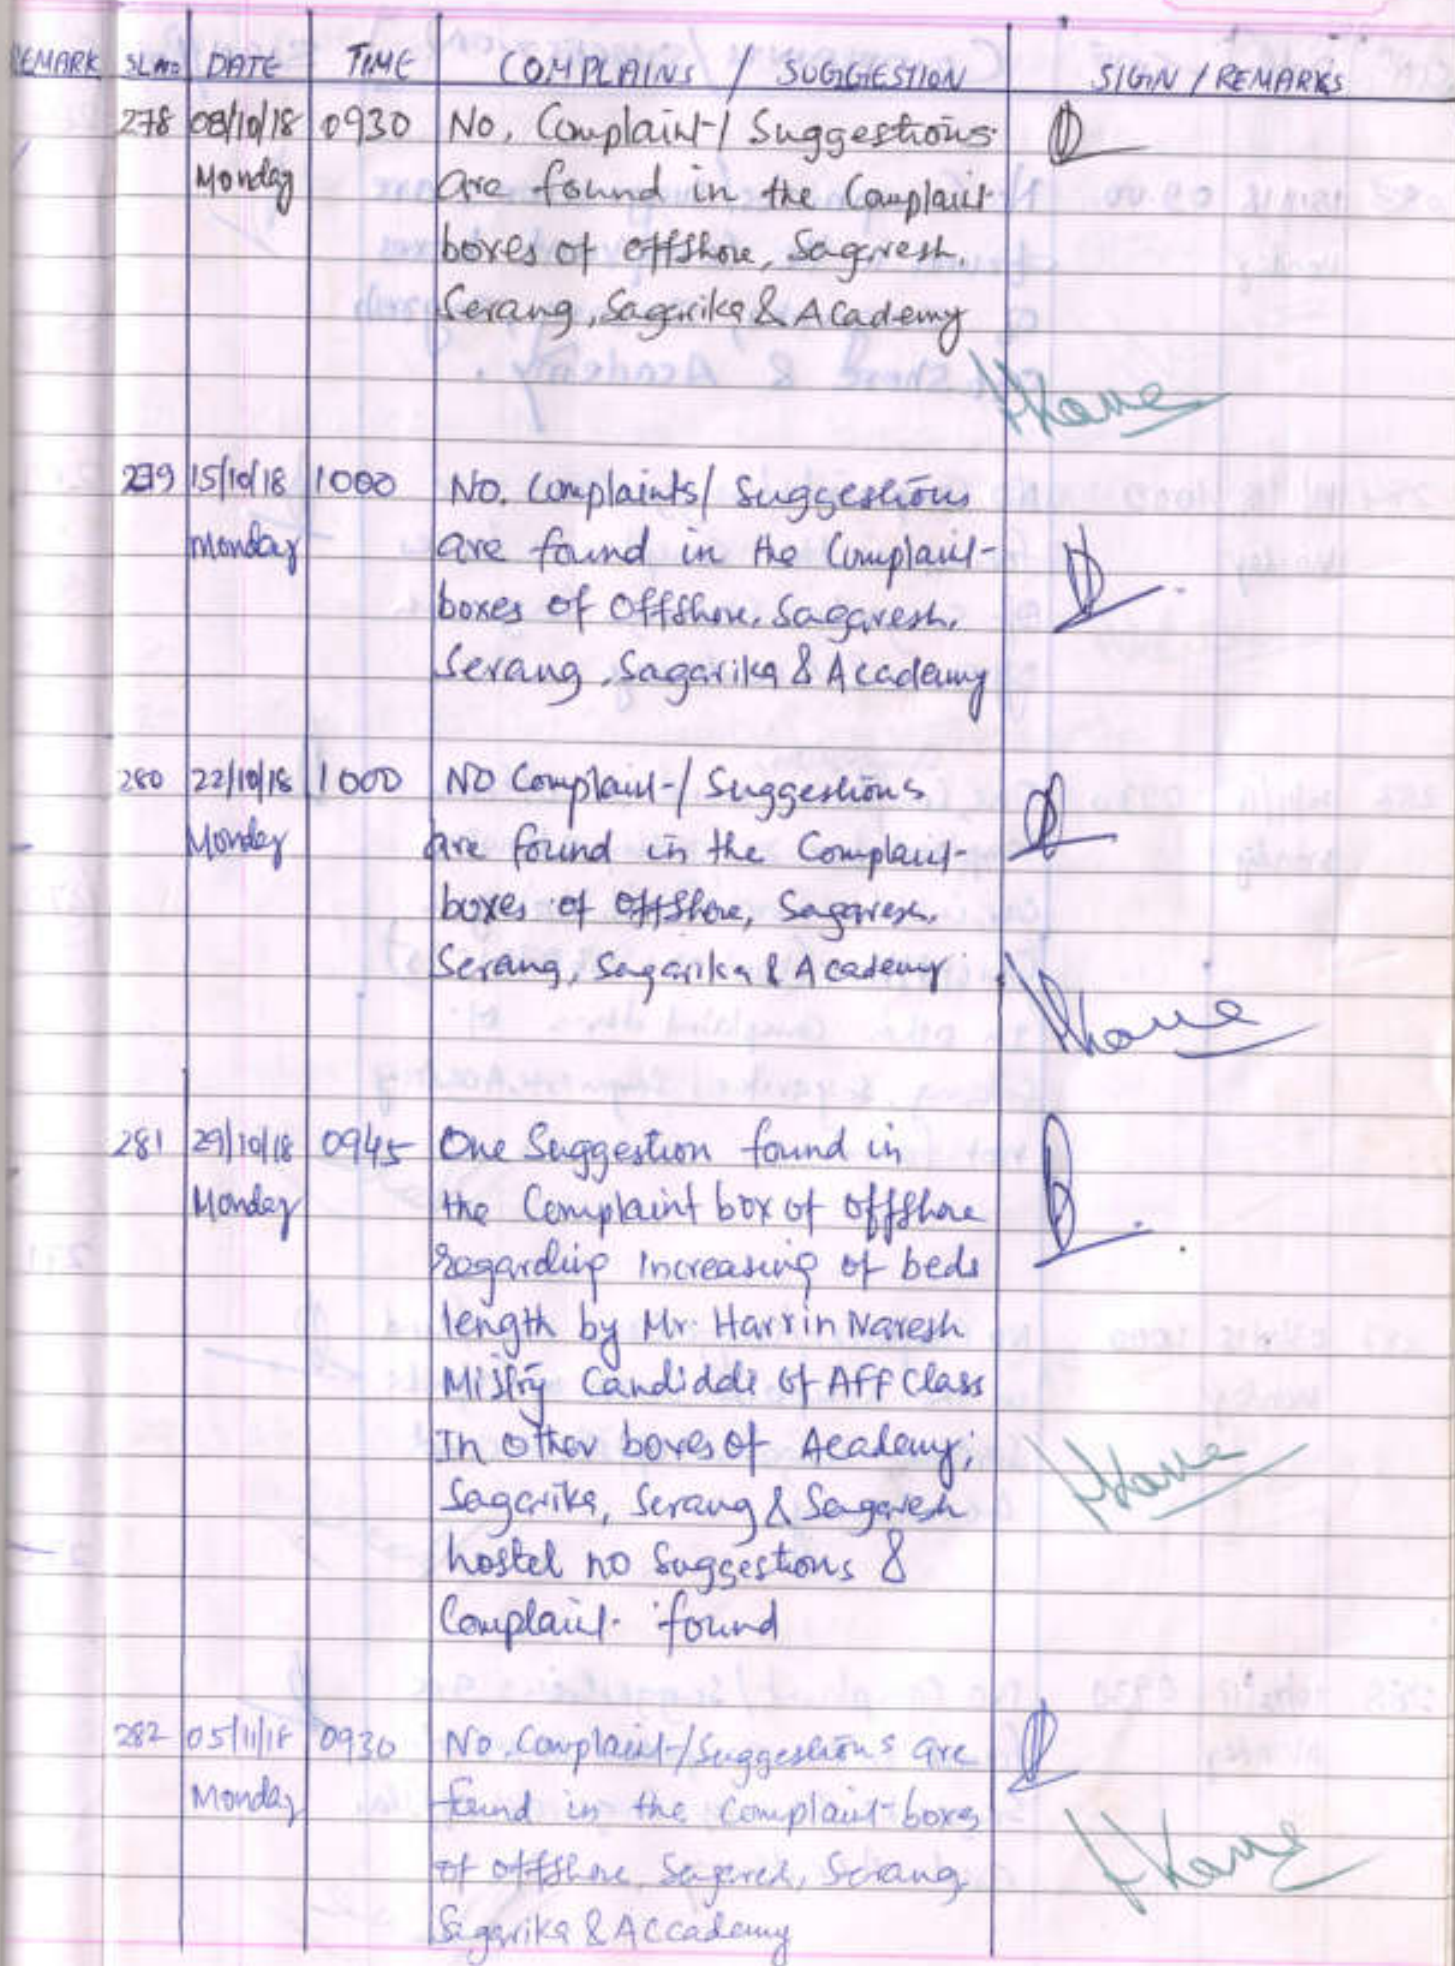 REMARK SL.NO DATE TIME COMPLAINS / SUGGESTION SIGIN / REMARKS
278 08/10/18 0930 No. Complaint / Suggestions
Monday are found in the Complaint
boxes of offshore, Sagaresh.
Serang, Sagarika & Academy
279 15/10/18 1000 NO. Complaints / Suggestions
Monday are found in the Complaint
boxes of Offshore, Sagaresh,
Serang, Sagarika & Academy
280 22/10/18 1000 NO Complaint / Suggestions
Monday are found in the Complaint
boxes of Offshore, Sagaresh.
Serang, Sagarika & Academy
281 29/10/18 0945 One Suggestion found in
Monday the Complaint box of offshore
regarding Increasing of beds
length by Mr. Harrin Naresh
Mistry Candidate of AFF Class
In other boxes of Academy,
Sagarika, Serang & Sagaresh
hostel no Suggestions &
Complaint found
282 05/11/18 0930 No. Complaint / Suggestions are
Monday found in the Complaint boxes
of offshore, Serang
Sagarika & ACcademy